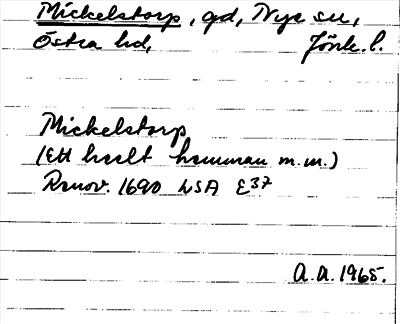 Mickelstorp, gd, Nye sn,
Östra hd, Jönk. l.
Mickelstorp
(Ett heelt hemman m.m.)
Renov. 1690 LSA E37
A.A. 1965.